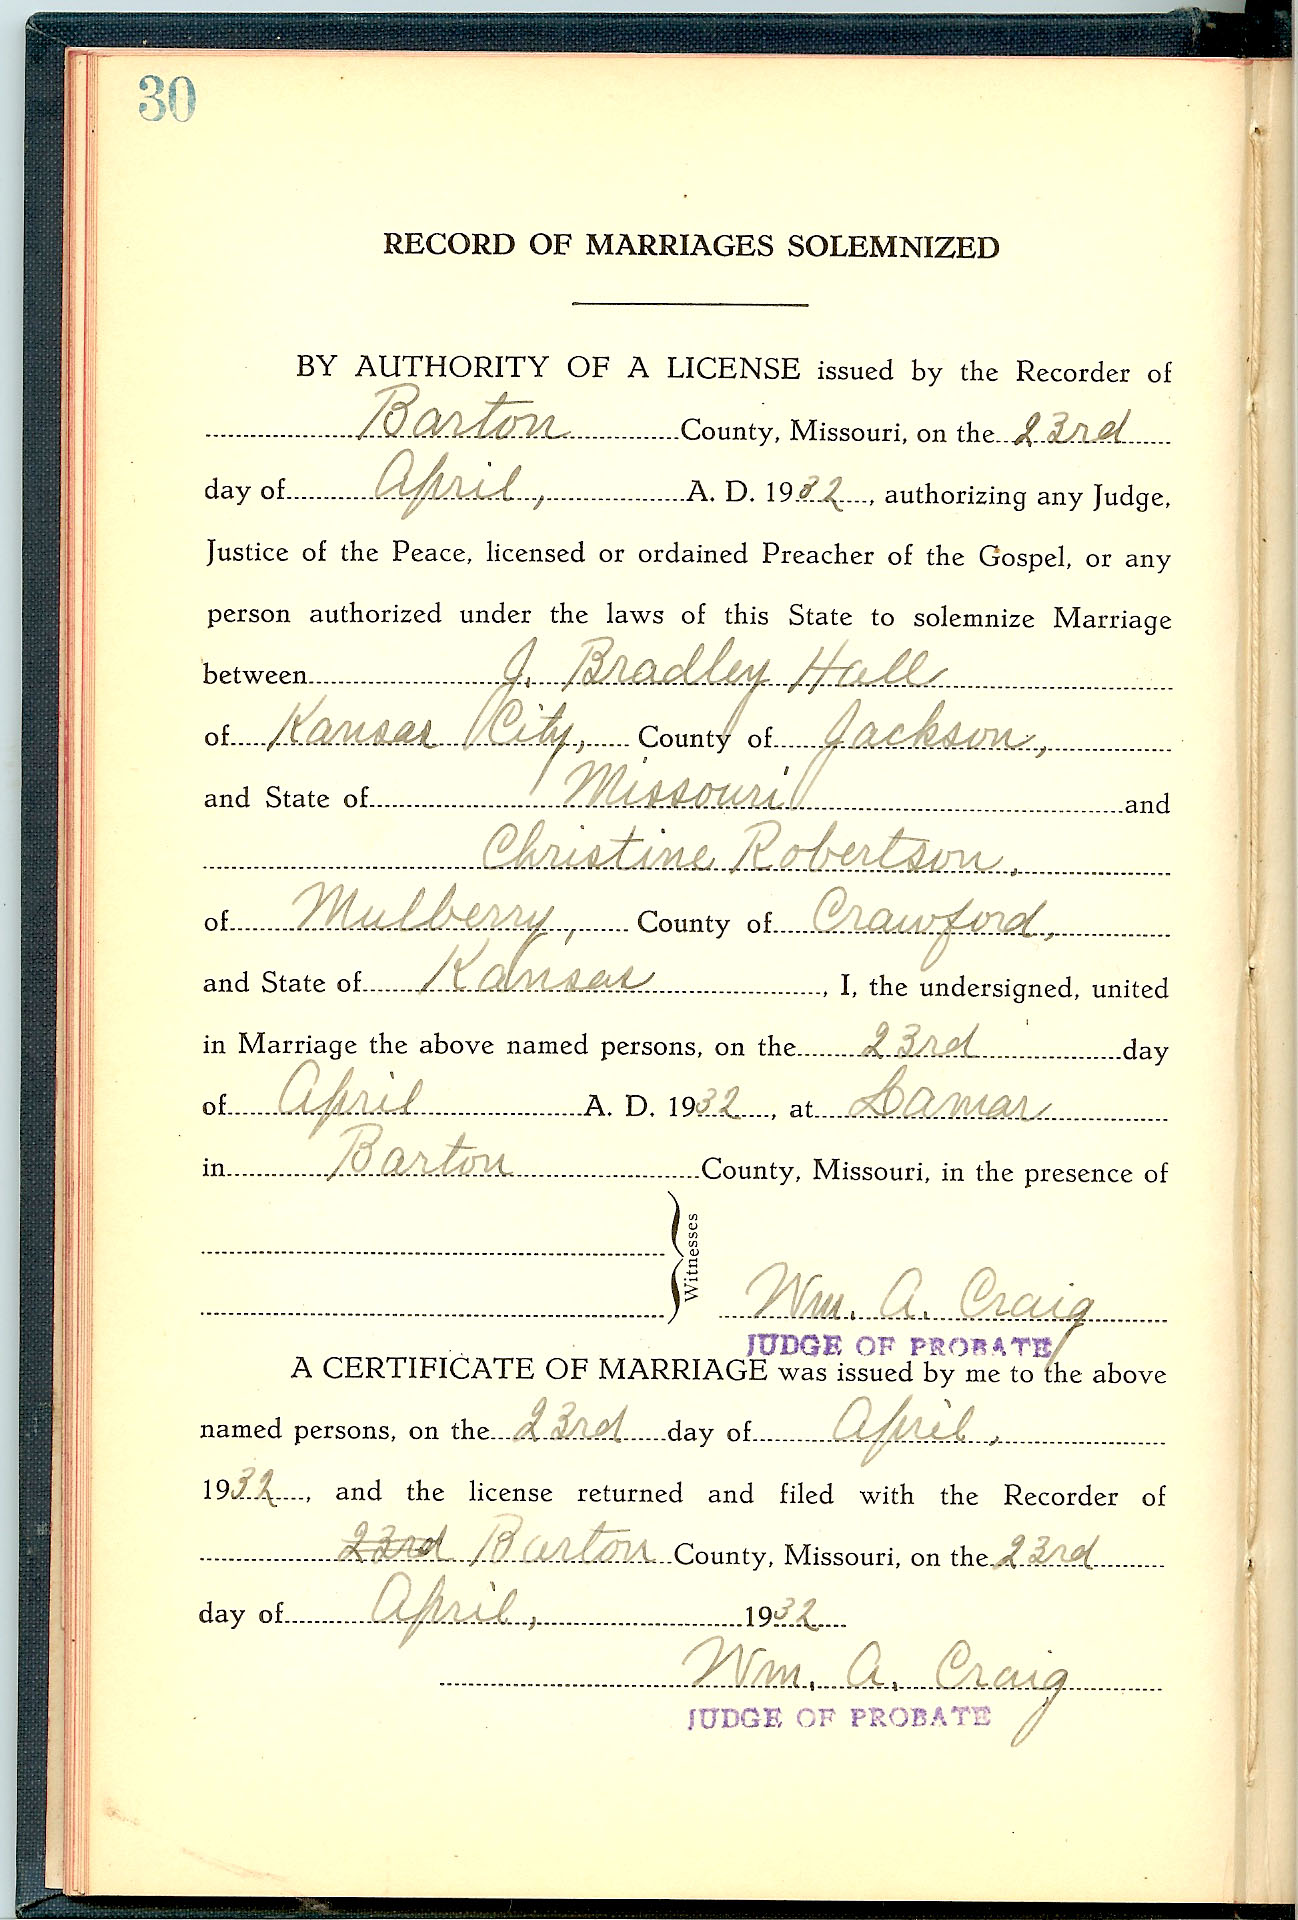 30
RECORD OF MARRIAGES SOLEMNIZED
BY AUTHORITY OF A LICENSE issued by the Recorder of
Barton County, Missouri, on the 23rd
day of April, A. D. 1932, authorizing any Judge,
Justice of the Peace, licensed or ordained Preacher of the Gospel, or any
person authorized under the laws of this State to solemnize Marriage
between J. Bradley Hall
of Kansas City, County of Jackson,
and State of Missouri and
Christine Robertson,
of Mulberry, County of Crawford,
and State of Kansas, I, the undersigned, united
in Marriage the above named persons, on the 23rd day
of April A. D. 1932, at Lamar
in Barton County, Missouri, in the presence of
Witnesses
Wm. A. Craig
JUDGE OF PROBATE
A CERTIFICATE OF MARRIAGE was issued by me to the above
named persons, on the 23rd day of April,
1932, and the license returned and filed with the Recorder of
23rd Barton County, Missouri, on the 23rd
day of April, 1932
Wm. A. Craig
JUDGE OF PROBATE